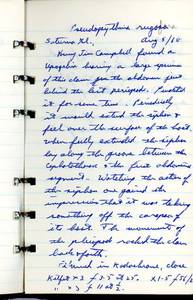 Pseudopythina rugosa
Saturna Isl. Aug 8/60
King Jim Campbell found a
Upogebia bearing a large specimen
of the clam on the abdomen just
behind the last pereopod. Watched
it for some time. Periodically
it would extend the siphon &
feel over the surface of the host
when fully extended the siphon
lay along the groove between the
cephalothorax & the first abdomina
segment. Watching the action of
the siphon one gained the
impression that it was taking
something off the carapace of
its host. The movements of
the pleopods rocked the clam
back & forth.
Filmed in Kodachrome, close